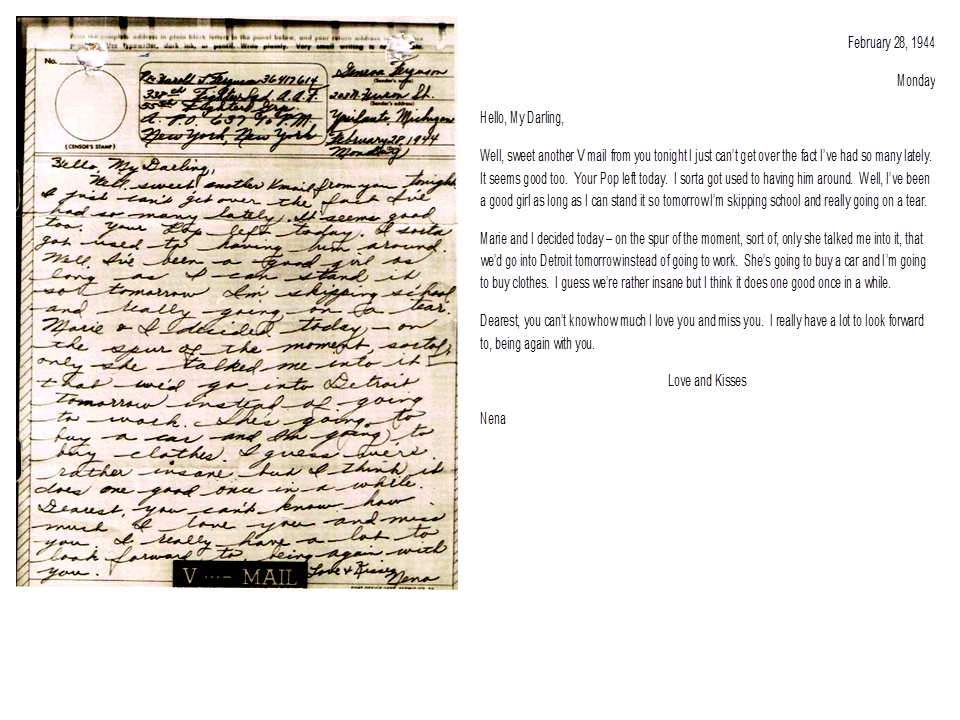 Print the complete address in plain block letters in the panel below, and your return address in the
Use typewriter, dark ink, or pencil. Write plainly. Very small writing is
No.
(CENSOR'S STAMP)
Pvt. Harold L. Ferguson 36417614
338th Fighter Sqd. A.A.F.
55th Fighter Grp.
A. P.O. 637 % P.M.
New York, New York
Geneva Ferguson
(Sender's name)
St.
(Sender's address)
Ypsilanti, Michigan
February 28, 1944
Monday
Hello, My Darling,
Well, sweet another Vmail from you tonight
I just can't get over the fact I've
had so many lately. It seems good
too. Your Pop left today. I sorta
got used to having him around.
Well I've been a good girl as
long as I can stand it
so tomorrow I'm skipping school
and really going on a tear.
Marie & I decided today – on
the spur of the moment, sort of,
only she talked me into it
that we'd go into Detroit
tomorrow instead of going
to work. She's going to
buy a car and I'm going to
buy clothes. I guess we're
rather insane but I think it
does one good once in a while.
Dearest, you can't know how
much I love you and miss
you. I really have a lot to
look forward to, being again with
you.
Love & Kisses
Nena
V ···– MAIL
February 28, 1944
Monday
Hello, My Darling,
Well, sweet another V mail from you tonight I just can't get over the fact I've had so many lately.
It seems good too. Your Pop left today. I sorta got used to having him around. Well, I've been
a good girl as long as I can stand it so tomorrow I'm skipping school and really going on a tear.
Marie and I decided today – on the spur of the moment, sort of, only she talked me into it, that
we'd go into Detroit tomorrow instead of going to work. She's going to buy a car and I'm going
to buy clothes. I guess we're rather insane but I think it does one good once in a while.
Dearest, you can't know how much I love you and miss you. I really have a lot to look forward
to, being again with you.
Love and Kisses
Nena